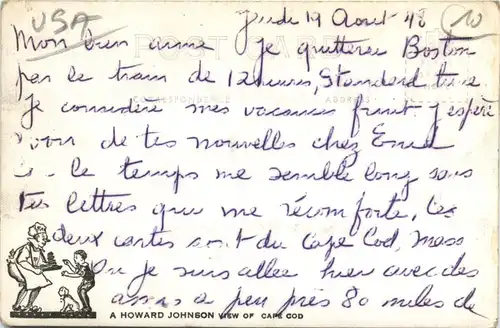 USA
Jeudi 19 Aout 48
10
Mon bien aimé Je quitterai Boston
POST CARD
par le train de 12 heures, Standard time
CORRESPONDENCE ADDRESS
Je considère mes vacances finit. J'espère
avoir de tes nouvelles chez
le temps me semble long sans
tes lettres que me réconforte, Les
deux cartes sont du Cape Cod, Mass
Ou je suis allée hier avec des
amis a peu près 80 miles de
A HOWARD JOHNSON VIEW OF CAPE COD